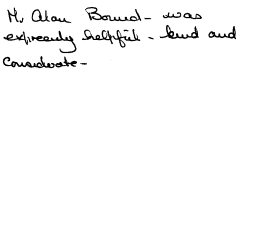 Mr Alan Bound - was
extremely helpful - kind and
considerate -